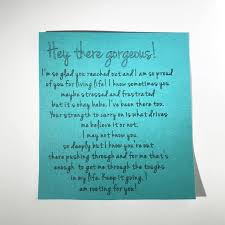 Hey there gorgeous!
I'm so glad you reached out and I am so proud
of you for living life! I know sometimes you
maybe stressed and frustrated
but it's okay babe, I've been there too.
Your strength to carry on is what drives
me believe it or not.
I may not know you
so deeply but I know you're out
there pushing through and for me that's
enough to get me through the toughs
in my life. Keep it going, I
am rooting for you!